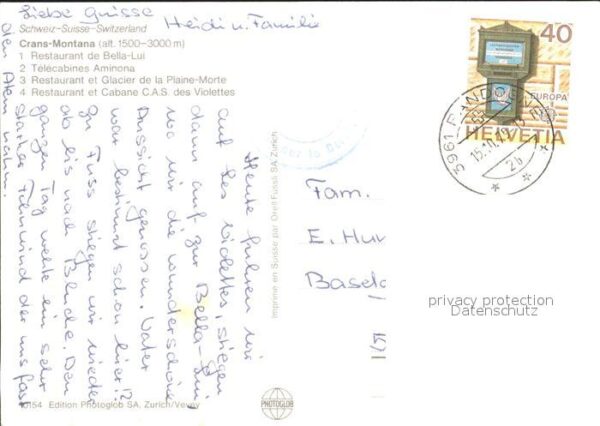 Schweiz-Suisse-Switzerland
Crans-Montana (alt. 1500-3000 m)
1 Restaurant de Bella-Lui
2 Télécabines Aminona
3 Restaurant et Glacier de la Plaine-Morte
4 Restaurant et Cabane C.A.S. des Violettes
Heute fuhren wir
auf les Violettes, stiegen
dann auf zur Bella-Lui,
wo wir die wunderschöne
Aussicht genossen. Vater
war bestimmt schon hier!?
Zu Fuss stiegen wir wieder
ab bis nach Bluche. Den
ganzen Tag wehte ein sehr
starker Föhnwind der uns fast
den Atem nahm.
Liebe Grüsse
Heidi u. Familie
Imprimé en Suisse par Orell Füssli SA Zürich
Fam.
E. Hu
Basel
40
EUROPA
HELVETIA
3961
15.10.79
2b
privacy protection
Datenschutz
154 Edition Photoglob SA, Zürich/Vevey
PHOTOGLOB